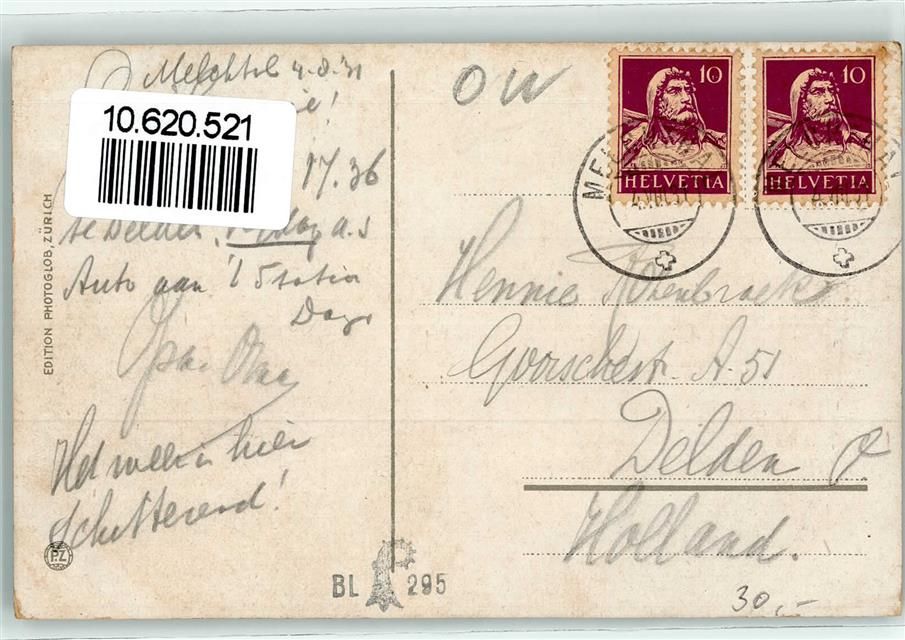 Melchthal 4-8-31
10.620.521
17.36
te Delden, Vrijdag a.s
Auto aan 't Station
Dag
Opa. Oma
Het weer is hier
schitterend!
EDITION PHOTOGLOB, ZÜRICH
P.Z
BL 295
OW
10 HELVETIA
10 HELVETIA
Hennie
A. 51
Delden
Holland.
30,-